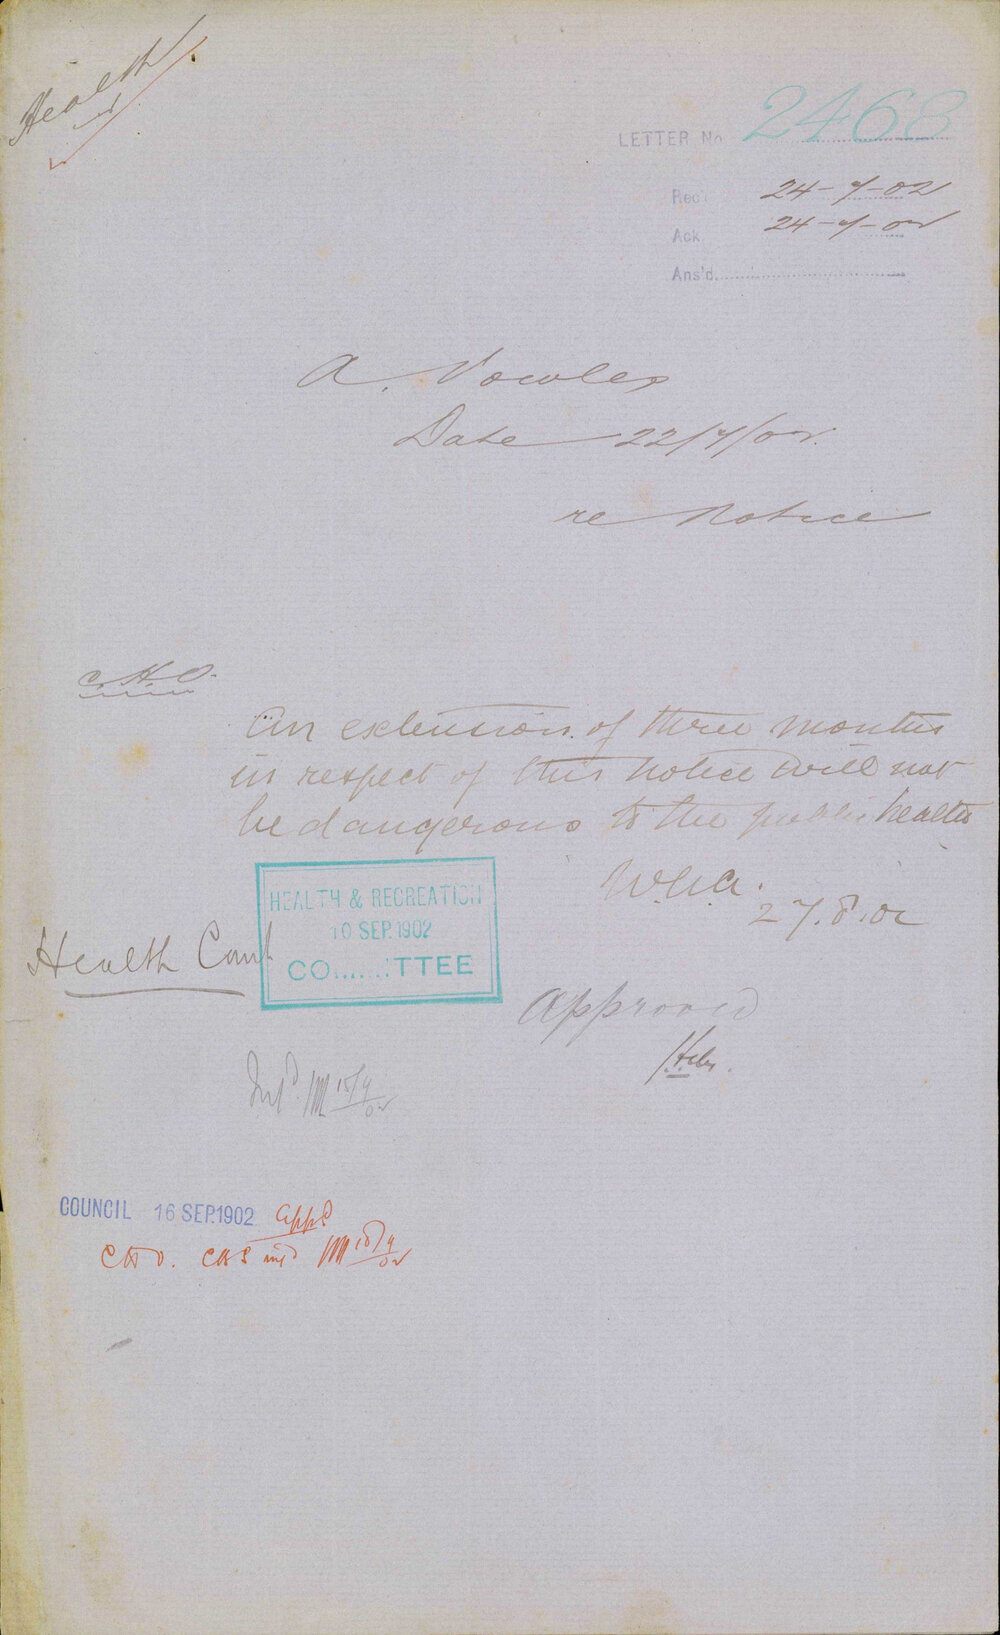 Health
LETTER No 2468
Rec'd 24-7-02
Ack 24-7-02
Ans'd
A. Vowles
Date 22/7/02.
re Notice
C.H.O.
An extension of three months
in respect of this notice will not
be dangerous to the public health
27.8.02
HEALTH & RECREATION
10 SEP. 1902
CO......TTEE
Health Comt
Approved
15/9/02
COUNCIL 16 SEP. 1902 appd
CHO.